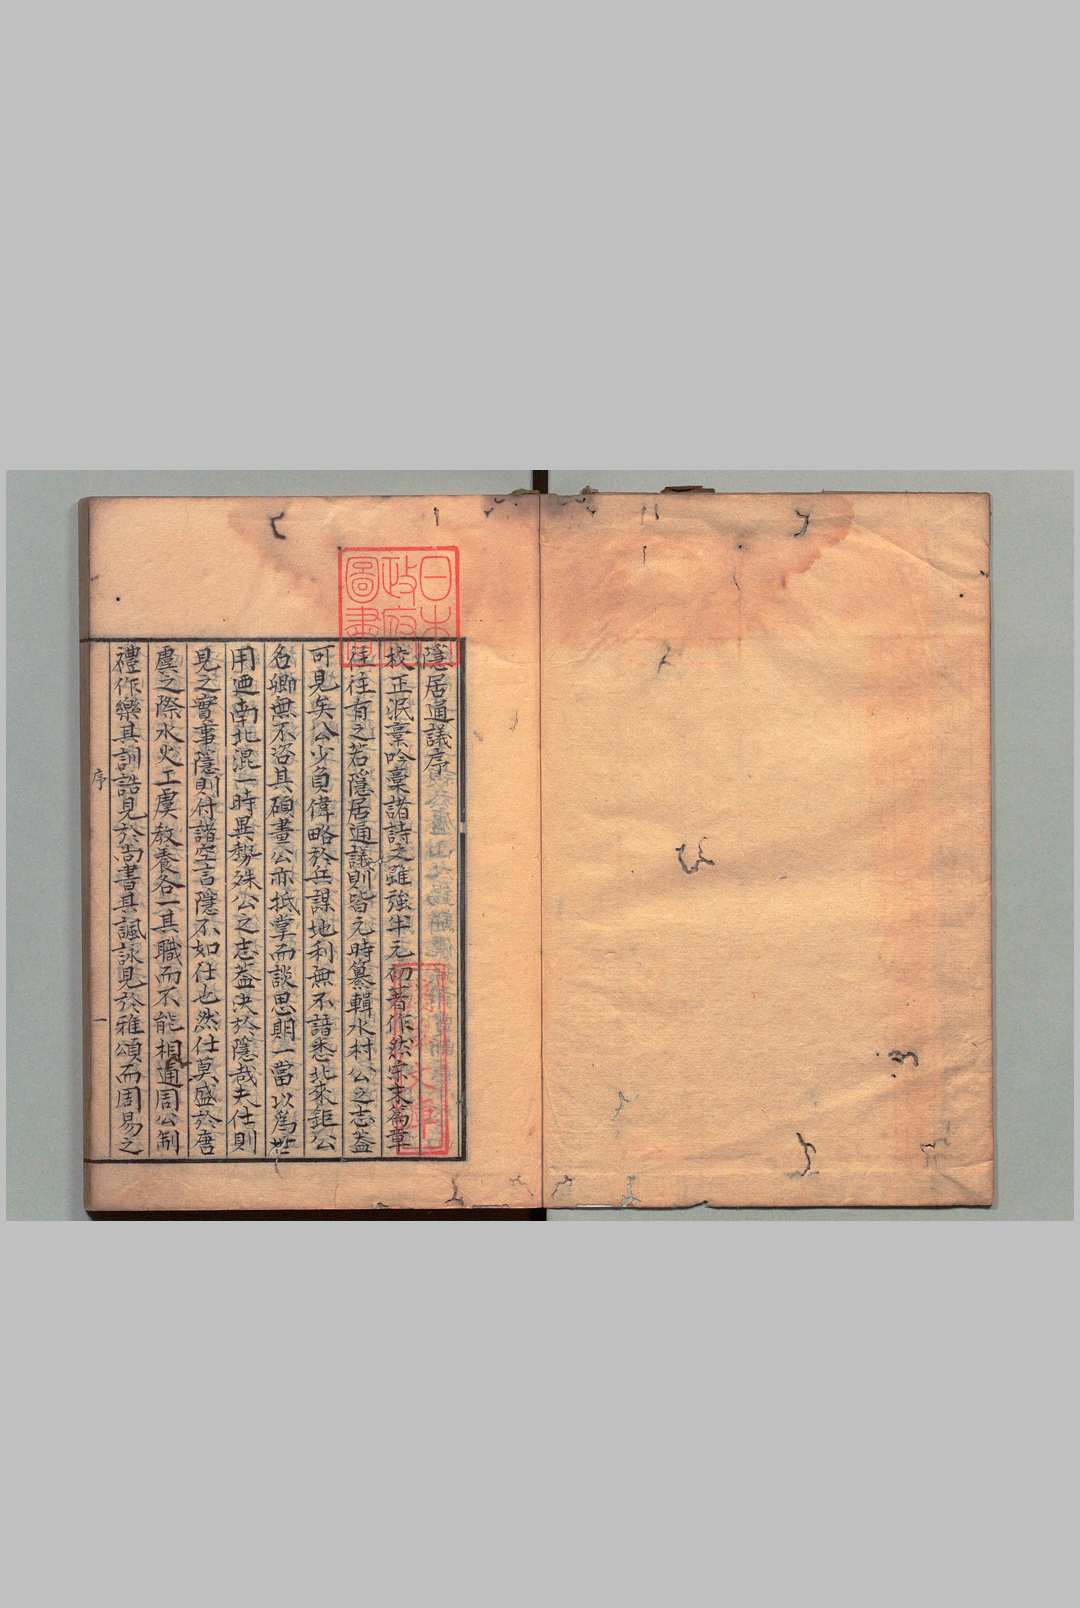 隱居通議序
校正泯藁吟藁諸詩文雖強半元初著作然宋末篇章
往往有之若隱居通議則皆元時纂輯水村公之志蓋
可見矣公少負偉略於兵謀地利無不諳悉北來鉅公
名卿無不咨其碩畫公亦抵掌而談思期一當以爲世
用迺南北混一時異勢殊公之志蓋決於隱哉夫仕則
見之實事隱則付諸空言隱不如仕也然仕莫盛於唐
虞之際水火工虞教養各一其職而不能相通周公制
禮作樂其訓誥見於尚書其諷詠見於雅頌而周易之
序
一
日本
政府
圖書